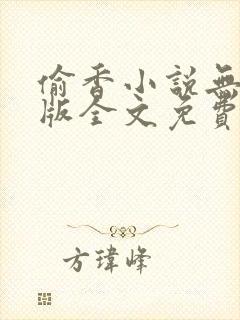 偷香小說無
版全文免費
方瑋峰